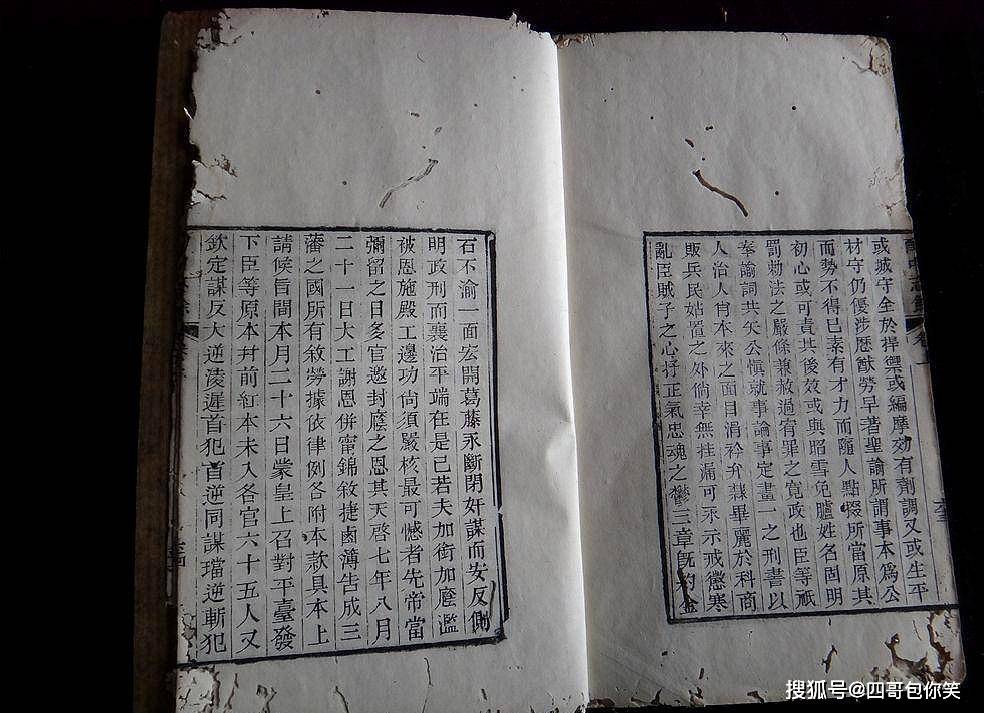 或城守全於捍禦或編摩効有劑調又或生平
材守仍優涉歷猷勞早著聖諭所謂事本為公
而勢不得已素有才力而隨人點掇所當原其
初心或可責其後效或與昭雪免臚姓名固明
罰勅法之嚴條兼赦過宥罪之寬政也臣等祇
奉諭詞共矢公愼就事論事定畫一之刑書以
人治人肖本來之面目涓衿弁隸畢麗於科商
販兵民姑置之外倘幸無挂漏可永示戒懲寒
亂臣賊子之心抒正氣忠魂之鬱三章旣約金
石不渝一面宏開葛藤永斷閉奸謀而安反側
明政刑而襄治平端在是已若夫加銜加廕濫
被恩施殿工邊功倘須嚴核最可憾者先帝當
彌留之日多官邀封廕之恩其天啓七年八月
二十一日大工謝恩併甯錦敘捷鹵簿告成三
藩之國所有敘勞據依律例各附本款具本上
請候旨間本月二十六日蒙皇上召對平臺發
下臣等原本幷前紅本未入各官六十五人又
欽定謀反大逆淩遲首犯首逆同謀璫逆斬犯
搜狐号@四哥包你笑